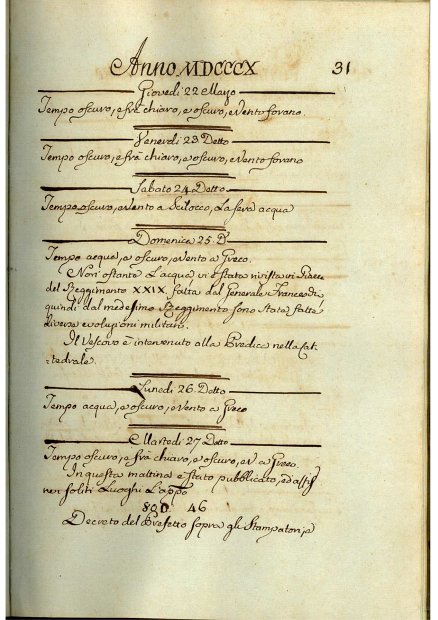 Anno MDCCCX 31
Giovedì 22 Marzo
Tempo oscuro, e frà chiaro, e oscuro, e Vento forano.
Venerdì 23 Detto
Tempo oscuro, e frà chiaro, e oscuro, e Vento forano
Sabato 24 Detto
Tempo oscuro, e Vento a Scilocco, la sera acqua
Domenica 25. D.
Tempo acqua, e oscuro, e Vento a Greco.
Non ostante l'acqua vi è stata rivista in
del Reggimento XXIX. fatta dal Generale Francese, di
quindi dal medesimo Reggimento sono state fatte
diverse evoluzioni militari.
Il Vescovo è intervenuto alla Predica nella Cat-
-tedrale.
Lunedì 26. Detto
Tempo acqua, e oscuro, e Vento a Greco
Martedì 27 Detto
Tempo oscuro, e frà chiaro, e oscuro, e V. a Greco.
In questa mattina è stato pubblicato, ed affis
ne soliti Luoghi l'app.o
46
Decreto del Prefetto sopra gli Stampatori, e